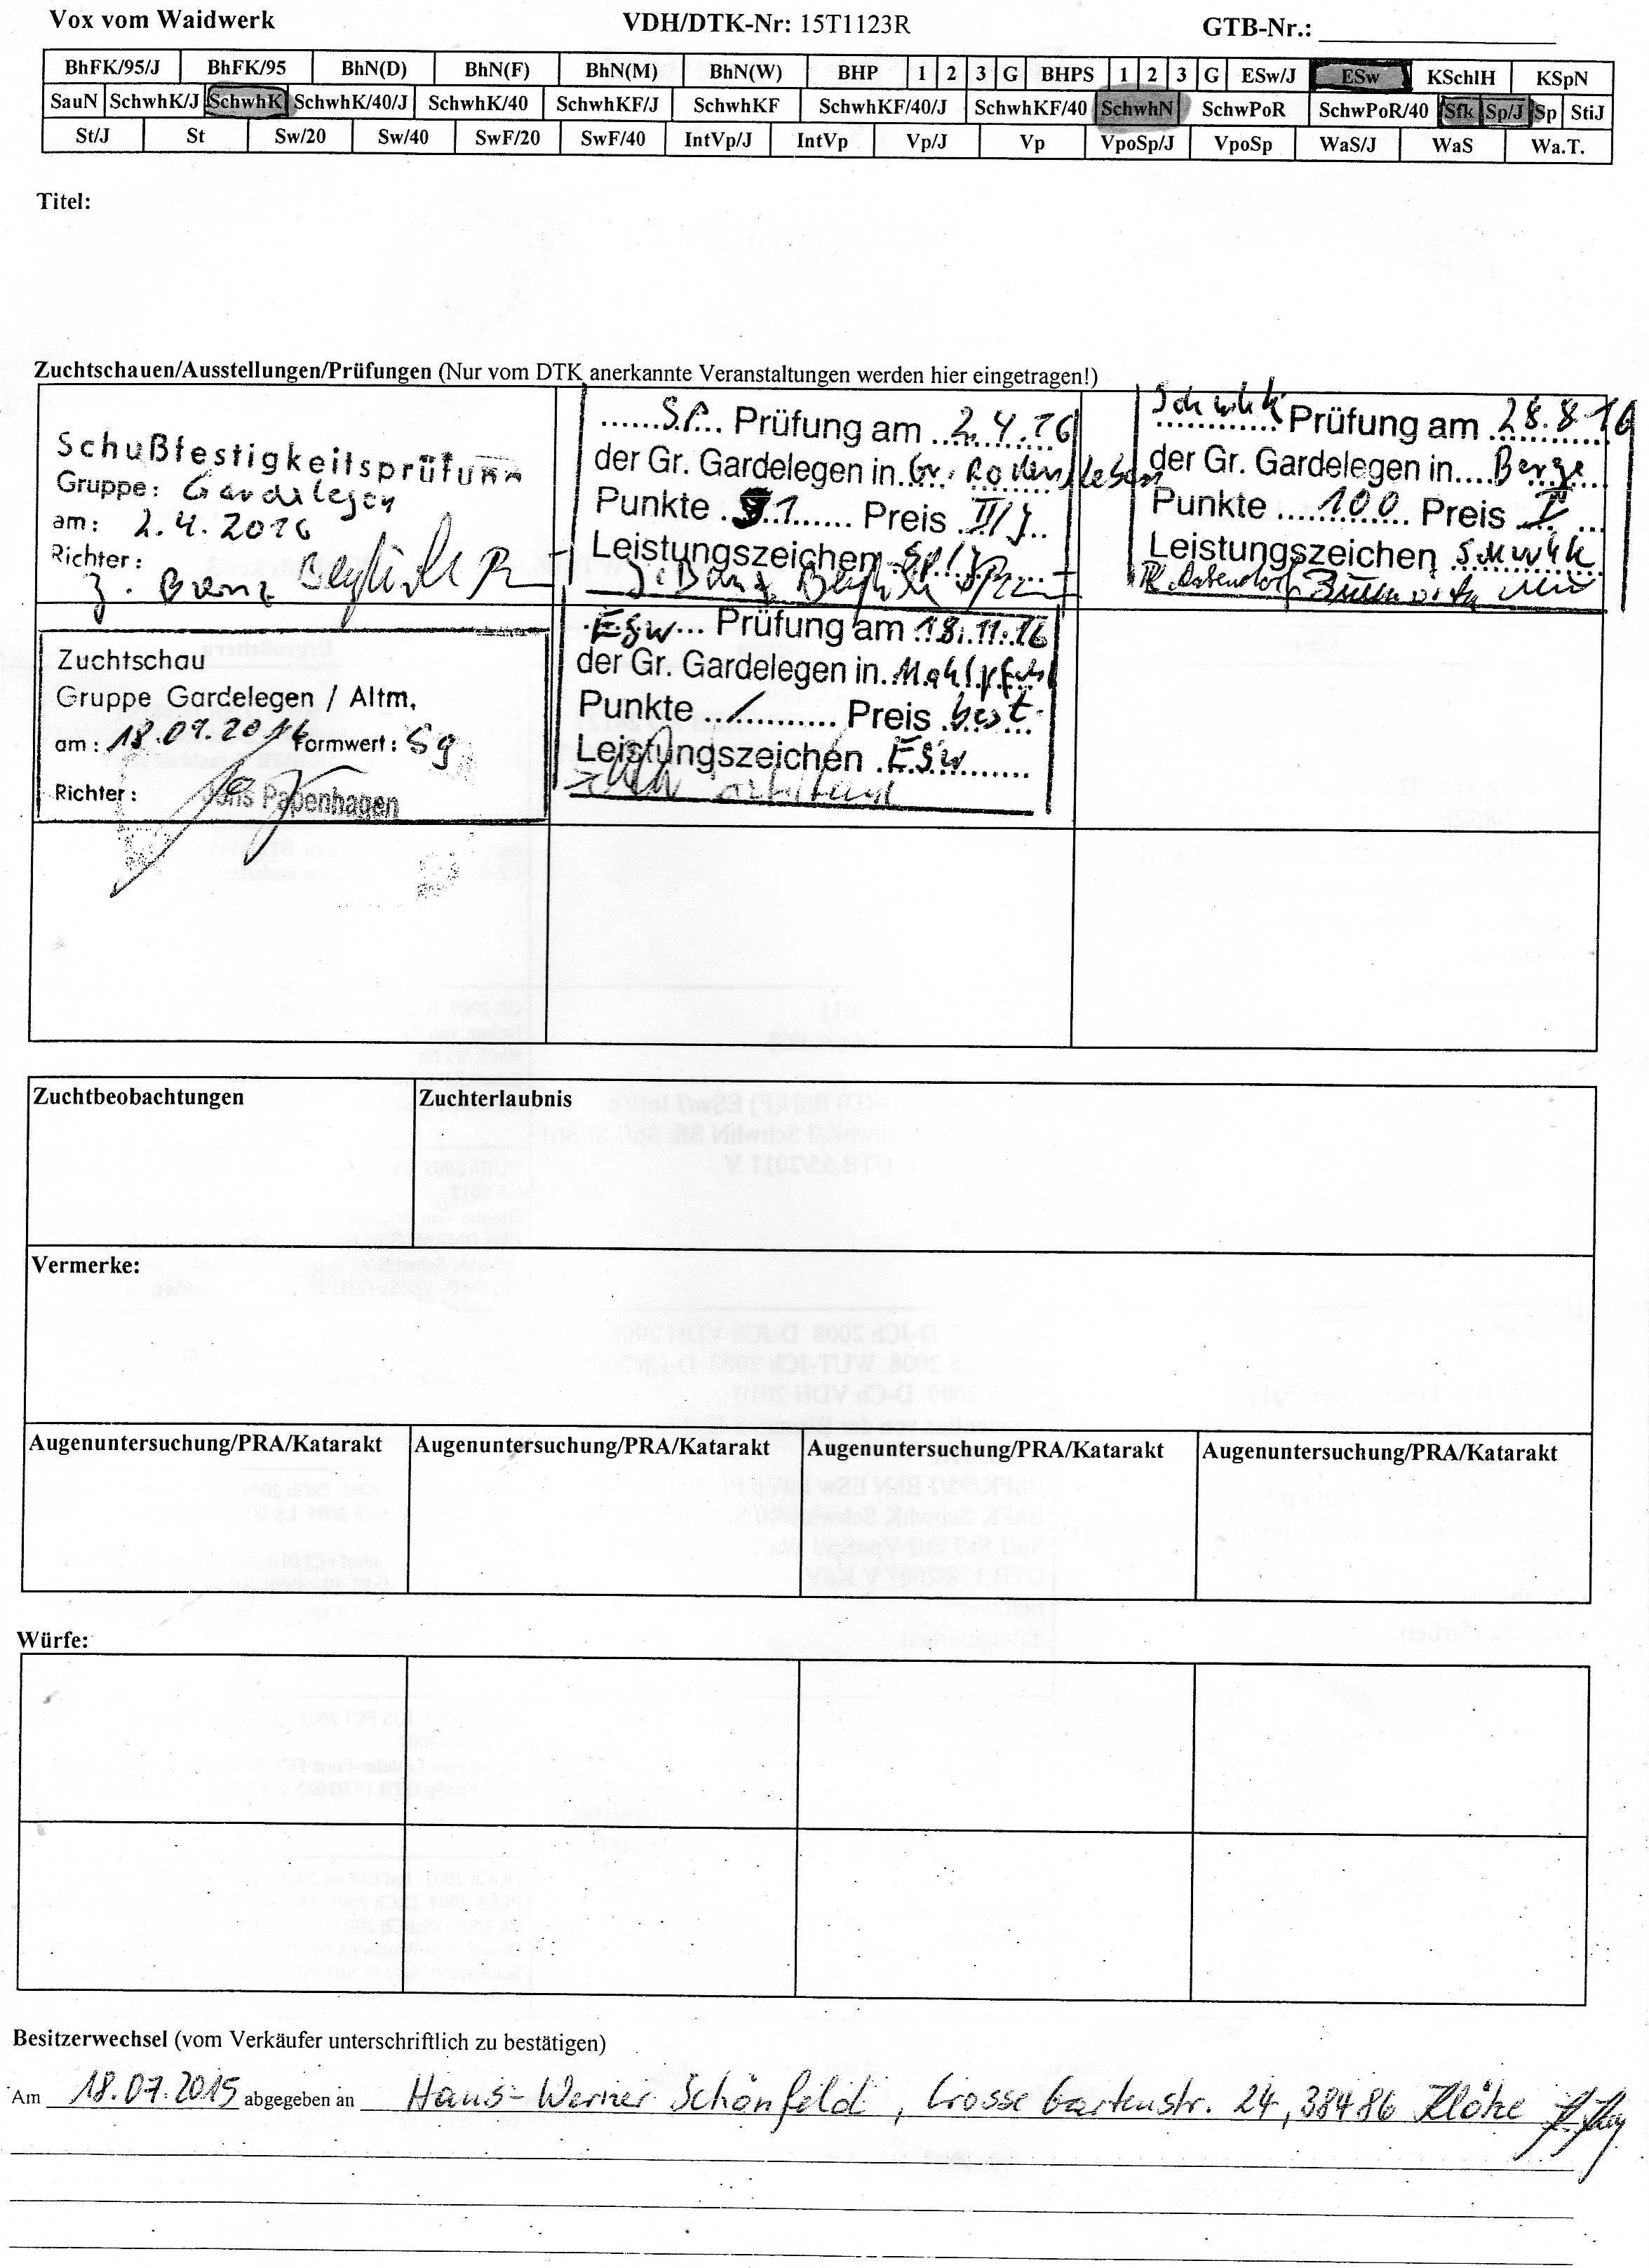 Vox vom Waidwerk VDH/DTK-Nr: 15T1123R GTB-Nr.:
BhFK/95/J BhFK/95 BhN(D) BhN(F) BhN(M) BhN(W) BHP 1 2 3 G BHPS 1 2 3 G ESw/J ESw KSchlH KSpN
SauN SchwhK/J SchwhK SchwhK/40/J SchwhK/40 SchwhKF/J SchwhKF SchwhKF/40/J SchwhKF/40 SchwhN SchwPoR SchwPoR/40 Sfk Sp/J Sp StiJ
St/J St Sw/20 Sw/40 SwF/20 SwF/40 IntVp/J IntVp Vp/J Vp VpoSp/J VpoSp WaS/J WaS Wa.T.
Titel:
Zuchtschauen/Ausstellungen/Prüfungen (Nur vom DTK anerkannte Veranstaltungen werden hier eingetragen!)
Schußfestigkeitsprüfung
Gruppe: Gardelegen
am: 2.4.2016
Richter:
Sp. Prüfung am 2.4.16
der Gr. Gardelegen in Gr. Rodensleben
Punkte 91 Preis II/J
Leistungszeichen Sp/J
Schwhk Prüfung am 28.8.16
der Gr. Gardelegen in Berge
Punkte 100 Preis I
Leistungszeichen Schwhk
Zuchtschau
Gruppe Gardelegen / Altm.
am: 18.09.2016 Formwert: Sg
Richter: Papenhagen
ESw Prüfung am 18.11.16
der Gr. Gardelegen in Mahlpfuhl
Punkte / Preis best.
Leistungszeichen ESw
Zuchtbeobachtungen Zuchterlaubnis
Vermerke:
Augenuntersuchung/PRA/Katarakt Augenuntersuchung/PRA/Katarakt Augenuntersuchung/PRA/Katarakt Augenuntersuchung/PRA/Katarakt
Würfe:
Besitzerwechsel (vom Verkäufer unterschriftlich zu bestätigen)
Am 18.07.2015 abgegeben an Hans-Werner Schönfeld, Grosse Gartenstr. 24, 38486 Klötze